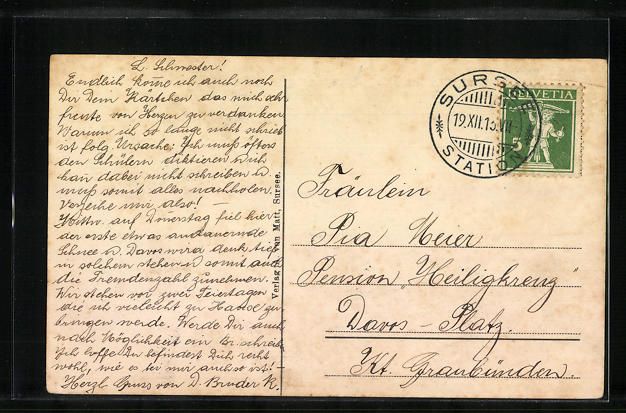 L. Schwester!
Endlich kome ich auch noch
Dir Dein Kärtchen das mich sehr
freute von Herzen zu verdanken.
Warum ich so lange nicht schrieb
ist folg. Ursache: Ich muß öfters
den Schülern diktieren u. ich
kan dabei nicht schreiben u.
muß somit alles nachholen.
Verzeihe mir also! —
Mittw. auf Donerstag fiel hier
der erste etwas andauernde
Schnee u. Davos wird denk tief
in solchem stehen u. somit auch
die Fremdenzahl zunehmen.
Wir stehen vor zwei Feiertagen
die ich vielleicht zu Hause zu
bringen werde. Werde Dir auch
nach Möglichkeit ein Br. schreib.
Ich hoffe Du befindest Dich recht
wohl, wie es bei mir auch so ist! —
Herzl. Gruss von D. Bruder K.
Verlag von Matt, Sursee.
SURSEE
19.XII.13.VII
STATION
HELVETIA
5
Fräulein
Pia Meier
Pension „Heiligkreuz"
Davos – Platz.
Kt. Graubünden.